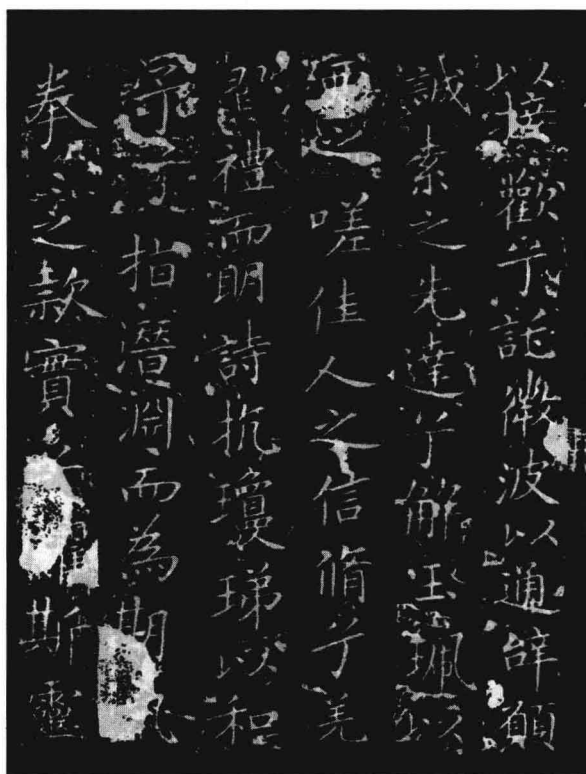 以接歡兮託微波以通辝願
誠素之先達兮解玉珮以
之嗟佳人之信脩兮羌
習禮而明詩抗瓊珶以和
予兮指潛淵而為期
之款實兮懼斯靈